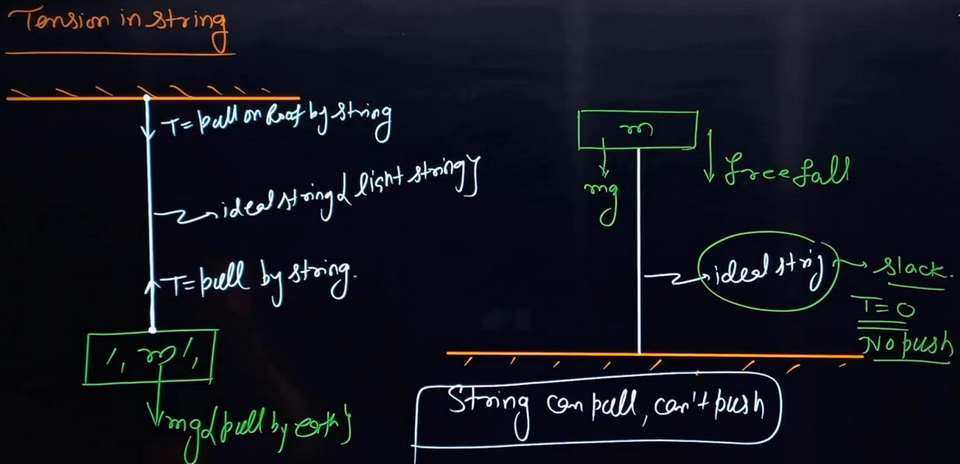 Tension in string
T = pull on Roof by string
ideal string { light string }
T = pull by string.
m
mg { pull by earth }
m
mg
free fall
ideal string → slack.
T = 0
No push
String can pull, can't push